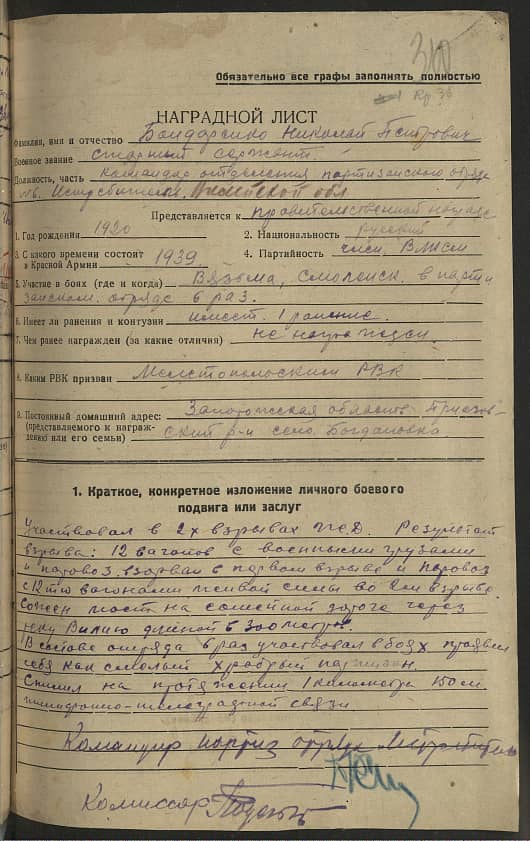 310
Обязательно все графы заполнять полностью
НАГРАДНОЙ ЛИСТ
Фамилия, имя и отчество Бондаренко Николай Петрович
Военное звание старший сержант
Должность, часть командир отделения партизанского отряда
Представляется к правительственной награде
1. Год рождения 1920 2. Национальность русский
3. С какого времени состоит в Красной Армии 1939 4. Партийность член ВЛКСМ
5. Участие в боях (где и когда) Вязьма, Смоленск. в парти
занском отряде 6 раз.
6. Имеет ли ранения и контузии имеет 1 ранение.
7. Чем ранее награжден (за какие отличия) не награжден.
8. Каким РВК призван Мелитопольским РВК
9. Постоянный домашний адрес: Запорожская область Приазов-
(представляемого к награж- ский р-н село Богдановка
дению или его семьи)
1. Краткое, конкретное изложение личного боевого
подвига или заслуг
Участвовал в 2х взрывах ж.д. Результат
взрыва: 12 вагонов с военными грузами
и паровоз взорван в первом взрыве и паровоз
с 12тю вагонами живой силы во 2м взрыве.
Сожжен мост на дороге через
реку Вилию длиной в 300 метров.
В составе отряда 6 раз участвовал в боях проявил
себя как смелый храбрый партизан.
Спилил на протяжении 1 километра 150 м.
телефонно-телеграфной связи.
Командир партиз отряда
Комиссар